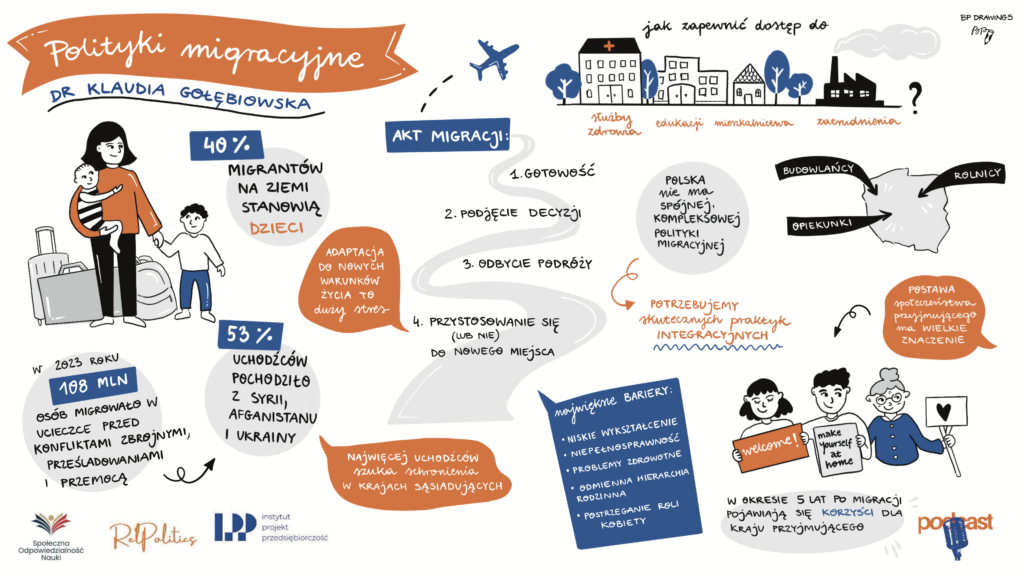 Polityki migracyjne
DR KLAUDIA GOŁĘBIOWSKA
40%
MIGRANTÓW
NA ZIEMI
STANOWIĄ
DZIECI
ADAPTACJA
DO NOWYCH
WARUNKÓW
ŻYCIA TO
duży stres
53%
UCHODŹCÓW
POCHODZIŁO
Z SYRII,
AFGANISTANU
I UKRAINY
W 2023 ROKU
108 MLN
OSÓB MIGROWAŁO W
UCIECZCE PRZED
KONFLIKTAMI ZBROJNYMI,
PRZEŚLADOWANIAMI
I PRZEMOCĄ
NAJWIĘCEJ UCHODŹCÓW
szuka schronienia
W KRAJACH SĄSIADUJĄCYCH
AKT MIGRACJI:
1. GOTOWOŚĆ
2. PODJĘCIE DECYZJI
3. ODBYCIE PODRÓŻY
4. PRZYSTOSOWANIE SIĘ
(LUB NIE)
DO NOWEGO MIEJSCA
jak zapewnić dostęp do
służby
zdrowia
edukacji
mieszkalnictwa
zatrudnienia
?
BP DRAWINGS
POLSKA
nie ma
SPÓJNEJ,
KOMPLEKSOWEJ
POLITYKI
MIGRACYJNEJ
POTRZEBUJEMY
skutecznych praktyk
INTEGRACYJNYCH
BUDOWLAŃCY
ROLNICY
OPIEKUNKI
POSTAWA
społeczeństwa
przyjmującego
ma WIELKIE
ZNACZENIE
największe BARIERY:
• NISKIE WYKSZTAŁCENIE
• NIEPEŁNOSPRAWNOŚĆ
• PROBLEMY ZDROWOTNE
• ODMIENNA HIERARCHIA
RODZINNA
• POSTRZEGANIE ROLI
KOBIETY
welcome!
make
yourself
at
home
W OKRESIE 5 LAT PO MIGRACJI
POJAWIAJĄ SIĘ KORZYŚCI DLA
KRAJU PRZYJMUJĄCEGO
podcast
Społeczna
Odpowiedzialność
Nauki
RelPolitics
IPP
instytut
projekt
przedsiębiorczość